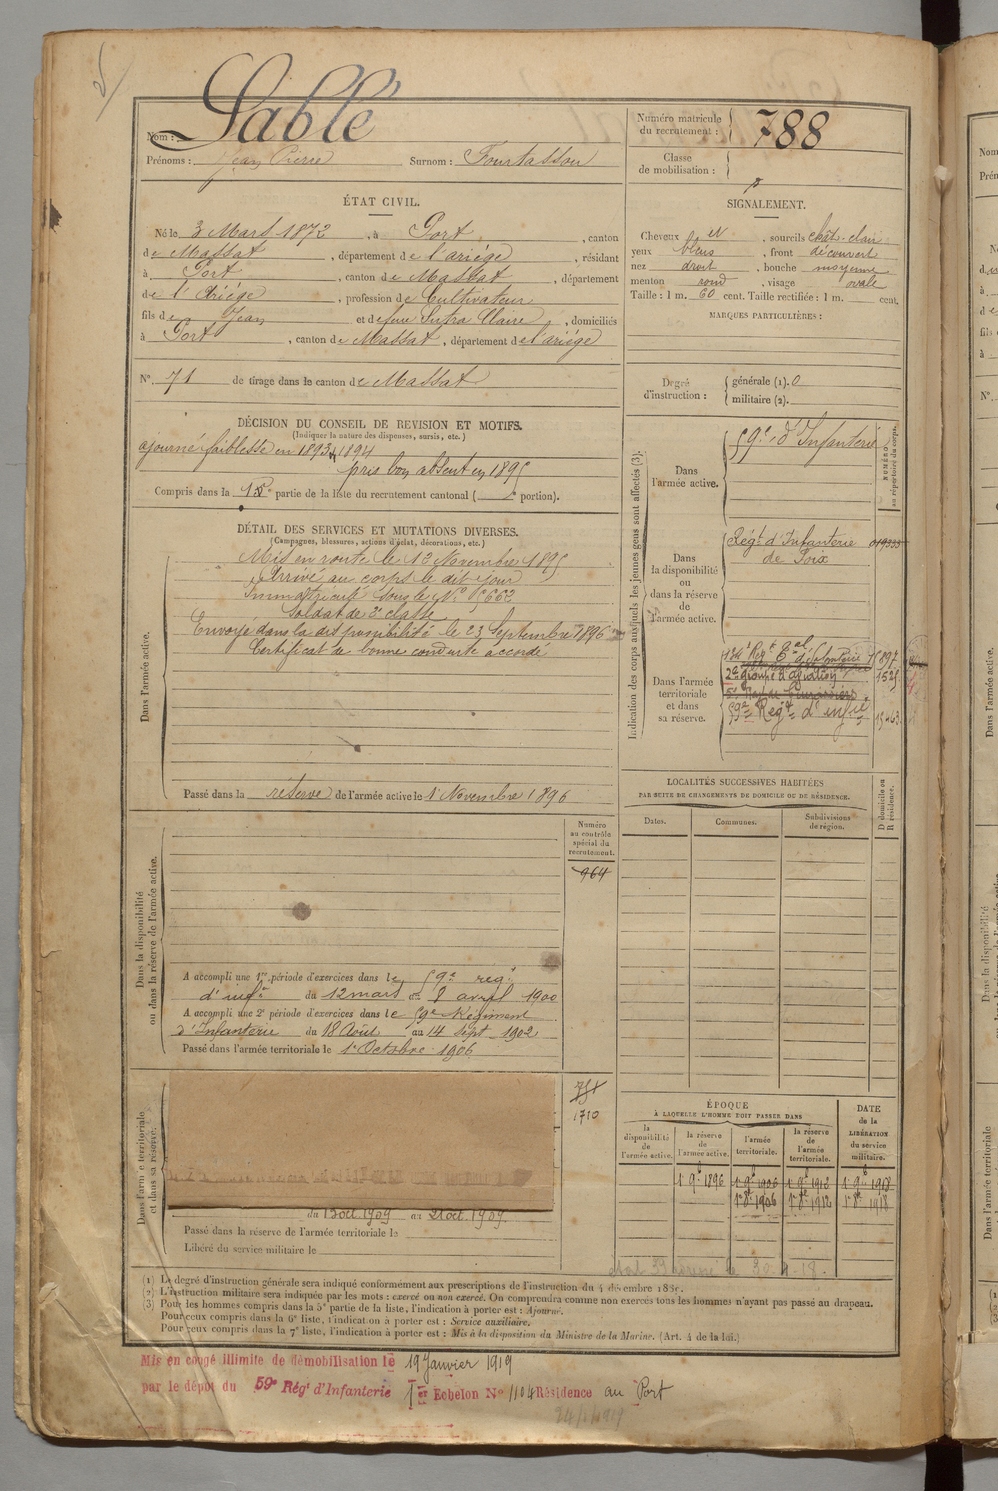 Nom : Sablé
Prénoms : Jean Pierre Surnom : Fourtassou
Numéro matricule du recrutement : 788
Classe de mobilisation :
ÉTAT CIVIL.
Né le 3 Mars 1872, à Port, canton
de Massat, département de l'ariége, résidant
à Port, canton de Massat, département
de l'Ariége, profession de Cultivateur
fils de Jean et de feue Sutra Claire, domiciliés
à Port, canton de Massat, département de l'ariége
N° 71 de tirage dans le canton de Massat
SIGNALEMENT.
Cheveux et, sourcils chât-clair
yeux bleus, front découvert
nez droit, bouche moyenne
menton rond, visage ovale
Taille : 1 m. 60 cent. Taille rectifiée : 1 m. cent.
MARQUES PARTICULIÈRES :
Degré d'instruction : générale (1). 0
militaire (2).
DÉCISION DU CONSEIL DE REVISION ET MOTIFS.
(Indiquer la nature des dispenses, sursis, etc.)
ajourné faiblesse en 1893, 1894
pris bon absent en 1895
Compris dans la partie de la liste du recrutement cantonal ( portion).
DÉTAIL DES SERVICES ET MUTATIONS DIVERSES.
(Campagnes, blessures, actions d'éclat, décorations, etc.)
Dans l'armée active.
Mis en route le 12 Novembre 1895
Arrivé au corps le dit jour
Immatriculé sous le N° 5662
Soldat de 2e classe
Envoyé dans la disponibilité le 23 Septembre 1896
Certificat de bonne conduite accordé
Passé dans la réserve de l'armée active le 1 Novembre 1896
Indication des corps auxquels les jeunes gens sont affectés (3).
NUMÉRO au répertoire du corps.
Dans l'armée active. 59e d'Infanterie
Dans la disponibilité ou dans la réserve de l'armée active.
Régt d'Infanterie 019333
de Foix
Dans l'armée territoriale et dans sa réserve.
134e Regt Eal d'Infanterie
2e groupe d'aviation 1525
59e Regt d'infie 15463
LOCALITÉS SUCCESSIVES HABITÉES
PAR SUITE DE CHANGEMENTS DE DOMICILE OU DE RÉSIDENCE.
Dates. Communes. Subdivisions de région. D domicile ou R résidence.
Dans la disponibilité ou dans la réserve de l'armée active.
Numéro au contrôle spécial du recrutement.
964
A accompli une 1re période d'exercices dans le 59e reg.t
d'infie du 12 mars au 8 avril 1900
A accompli une 2e période d'exercices dans le 59e Régiment
d'Infanterie du 18 Août au 14 Sept 1902
Passé dans l'armée territoriale le 1er Octobre 1906
Dans l'armée territoriale et dans sa réserve.
751
1710
du 13 oct. 1909 au 21 oct. 1909
Passé dans la réserve de l'armée territoriale le
Libéré du service militaire le
ÉPOQUE
À LAQUELLE L'HOMME DOIT PASSER DANS
DATE de la LIBÉRATION du service militaire.
la disponibilité de l'armée active. la réserve de l'armée active. l'armée territoriale. la réserve de l'armée territoriale.
1r 9b 1896 1r 9b 1906 1r 9b 1912 1r 9b 1918
1r 8e 1906 1r 8e 1912 1r 8e 1918
(1) Le degré d'instruction générale sera indiqué conformément aux prescriptions de l'instruction du 4 décembre 1889.
(2) L'instruction militaire sera indiquée par les mots : exercé ou non exercé. On comprendra comme non exercés tous les hommes n'ayant pas passé au drapeau.
(3) Pour les hommes compris dans la 5e partie de la liste, l'indication à porter est : Ajourné.
Pour ceux compris dans la 6e liste, l'indication à porter est : Service auxiliaire.
Pour ceux compris dans la 7e liste, l'indication à porter est : Mis à la disposition du Ministre de la Marine. (Art. 4 de la loi.)
Mis en congé illimité de démobilisation le 19 Janvier 1919
par le dépôt du 59e Régt d'Infanterie 1er Echelon N° 1104 Résidence au Port